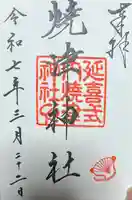 奉拝
延喜式
内焼津
神社
焼津神社
令和七年三月二十二日